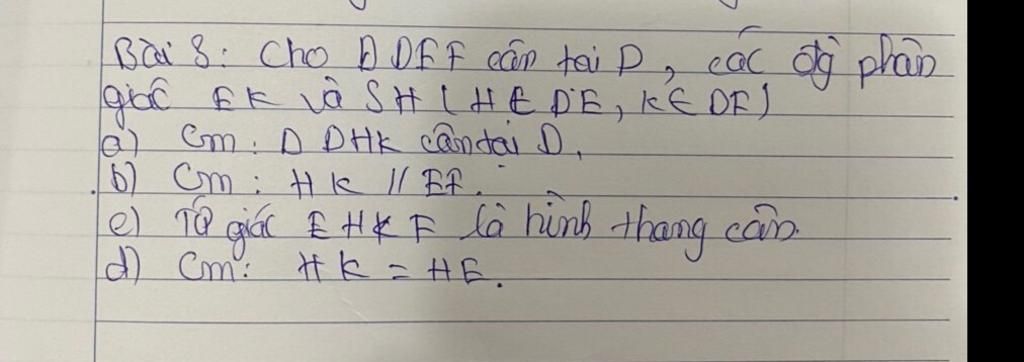 Bài 8: Cho Δ DEF cân tại D, các đg phân
giác EK và SH (H ∈ DE, K ∈ DF)
a) Cm: Δ DHK cân tại D.
b) Cm: HK // EF.
c) Tứ giác EHKF là hình thang cân.
d) Cm: HK = HE.